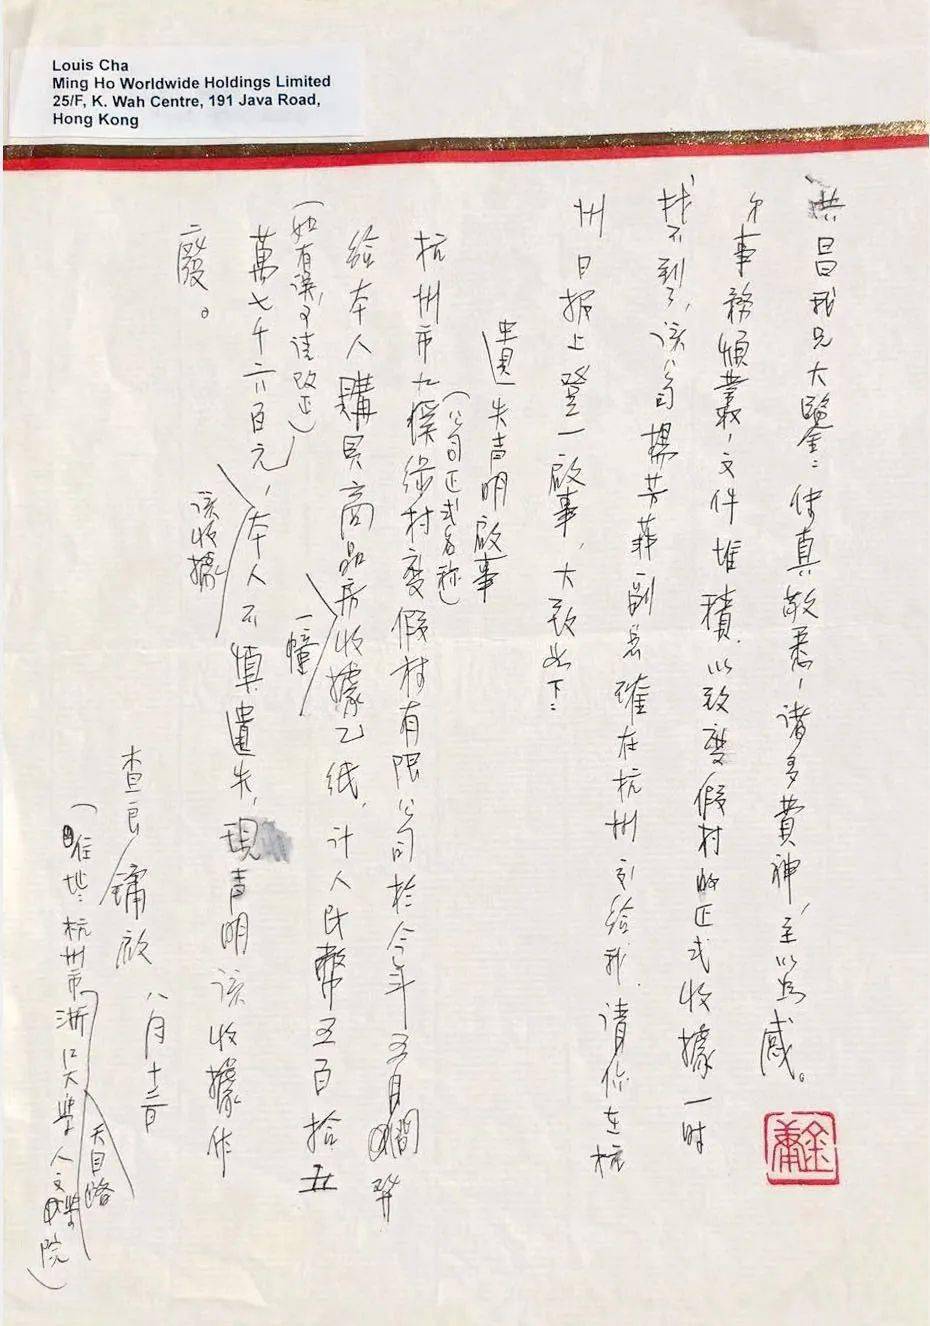 Louis Cha
Ming Ho Worldwide Holdings Limited
25/F, K. Wah Centre, 191 Java Road,
Hong Kong
洪昌我兄大鑒：傳真敬悉，諸多費神，至以為感。
弟事務煩叢，文件堆積，以致度假村的正式收據一時
找不到了，該公司楊芳菲副總確在杭州交給我，請你在杭
州日报上登一啟事，大致如下：
遺失声明啟事
杭州市九溪綠村度假村有限公司於今年五月間發
（公司正式名称）
给本人購買商品房一幢收據乙纸，计人民幣五百拾五
（如有误，請改正）
萬七千六百元，該收據本人不慎遺失，現声明该收據作
廢。
查良鏞啟 八月十二日
（住址：杭州市天目路浙江大學人文學院）
金庸